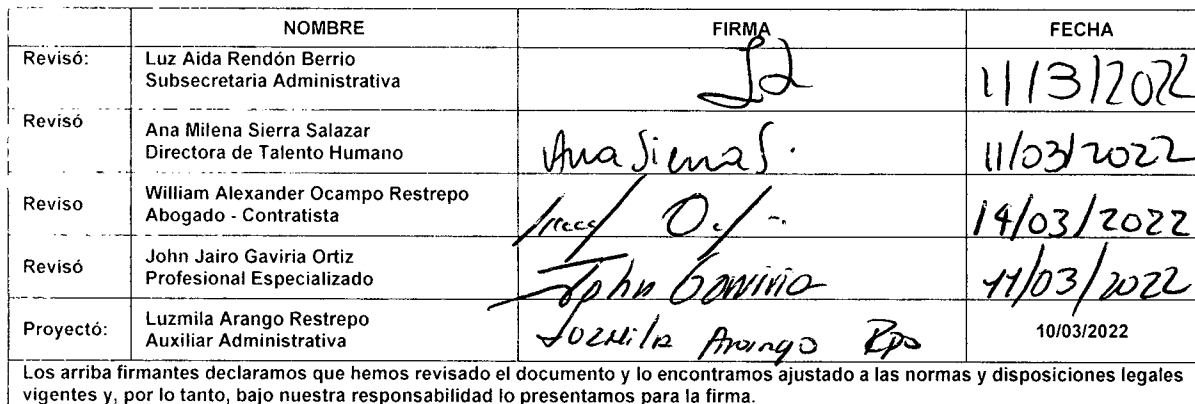 NOMBRE FIRMA FECHA
Revisó: Luz Aida Rendón Berrio
Subsecretaria Administrativa
11/3/2022
Revisó Ana Milena Sierra Salazar
Directora de Talento Humano
Ana Sierra S. 11/03/2022
Reviso William Alexander Ocampo Restrepo
Abogado - Contratista
14/03/2022
Revisó John Jairo Gaviria Ortiz
Profesional Especializado
John Gaviria 11/03/2022
Proyectó: Luzmila Arango Restrepo
Auxiliar Administrativa
Luzmila Arango Rpo 10/03/2022
Los arriba firmantes declaramos que hemos revisado el documento y lo encontramos ajustado a las normas y disposiciones legales
vigentes y, por lo tanto, bajo nuestra responsabilidad lo presentamos para la firma.